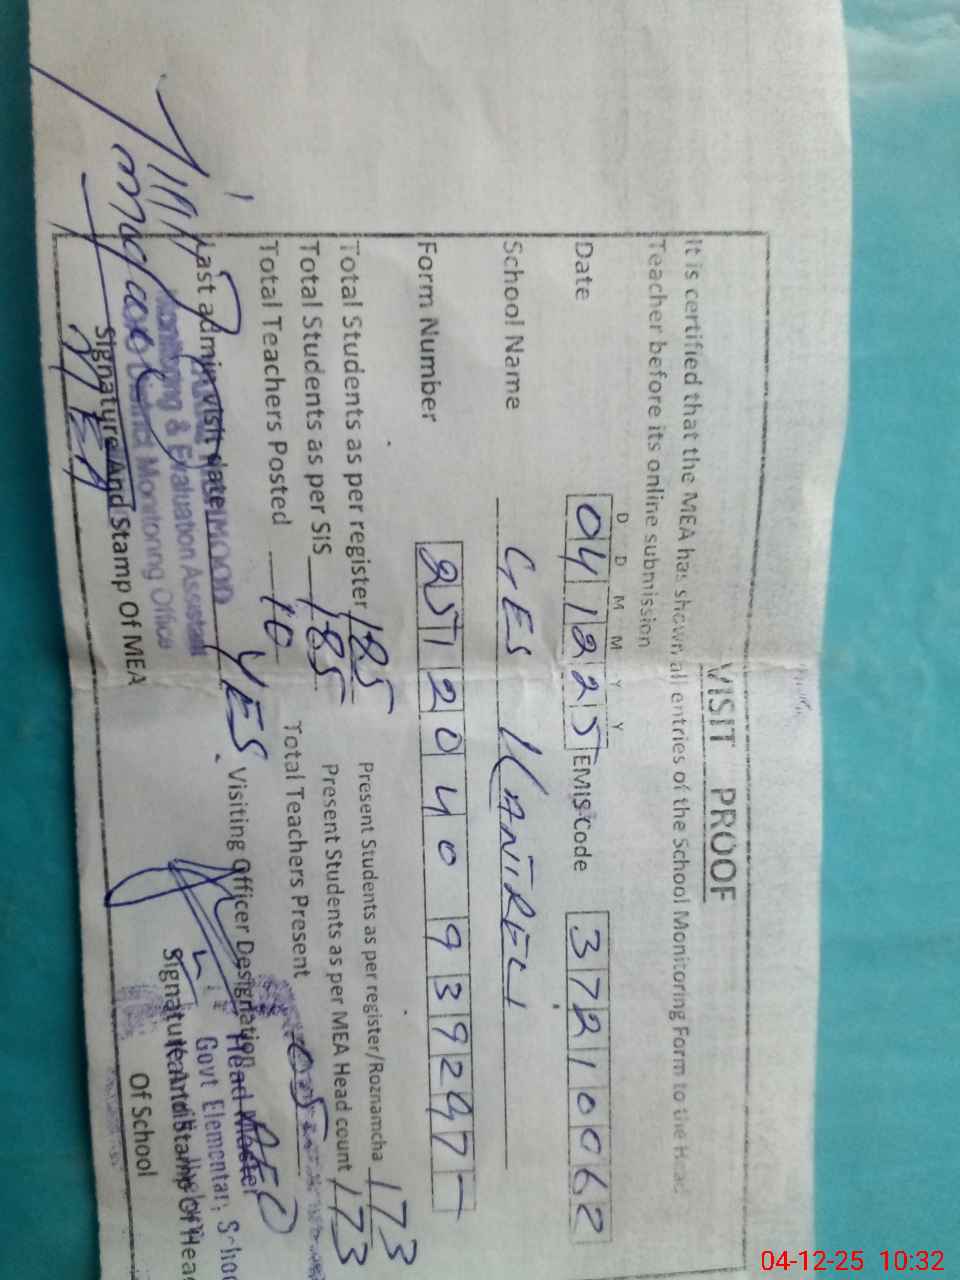 VISIT PROOF
It is certified that the MEA has shown all entries of the School Monitoring Form to the Head
Teacher before its online submission
D D M M Y Y
Date 041225 EMIS Code 37210062
School Name GES KANIRELI
Form Number 251204093929
Total Students as per register 185 Present Students as per register/Roznamcha 173
Total Students as per SIS 185 Present Students as per MEA Head count 173
Total Teachers Posted 10 Total Teachers Present 05
Last admin visit date YES Visiting Officer Designation AEO
Monitoring & Evaluation Assistant
District Monitoring Office
Head Master
Govt Elementary School
Signature And Stamp Of MEA Signature And Stamp Of Head
Of School
04-12-25 10:32